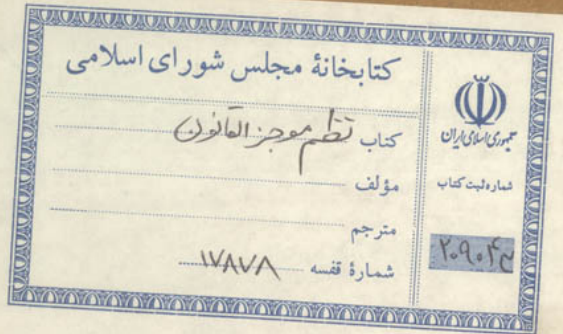 کتابخانهٔ مجلس شورای اسلامی
کتاب نظم موجز القانون
مؤلف
مترجم
شمارهٔ قفسه ۱۷۸۷۸
جمهوری اسلامی ایران
شماره ثبت کتاب
۲۰۹۰۴۳